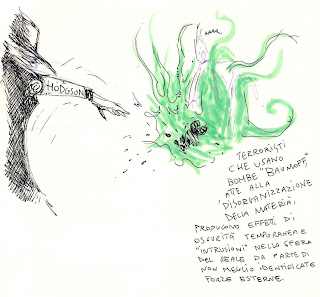 HODGSON
AAAA..
TERRORISTI
CHE USANO
BOMBE "BAUMOFF",
ATTE ALLA
DISORGANIZZAZIONE
DELLA MATERIA:
PRODUCONO EFFETTI DI
OSCURITÀ TEMPORANEA E
"INTRUSIONI" NELLA SFERA
DEL REALE DA PARTE DI
NON MEGLIO IDENTIFICATE
FORZE ESTERNE.